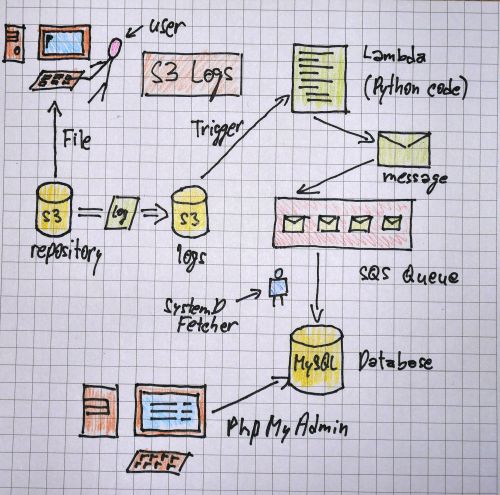 user
S3 Logs
Lambda
(Python code)
Trigger
File
message
S3
Log
S3
repository
logs
SQS Queue
SystemD
Fetcher
MySQL
Database
Php My Admin